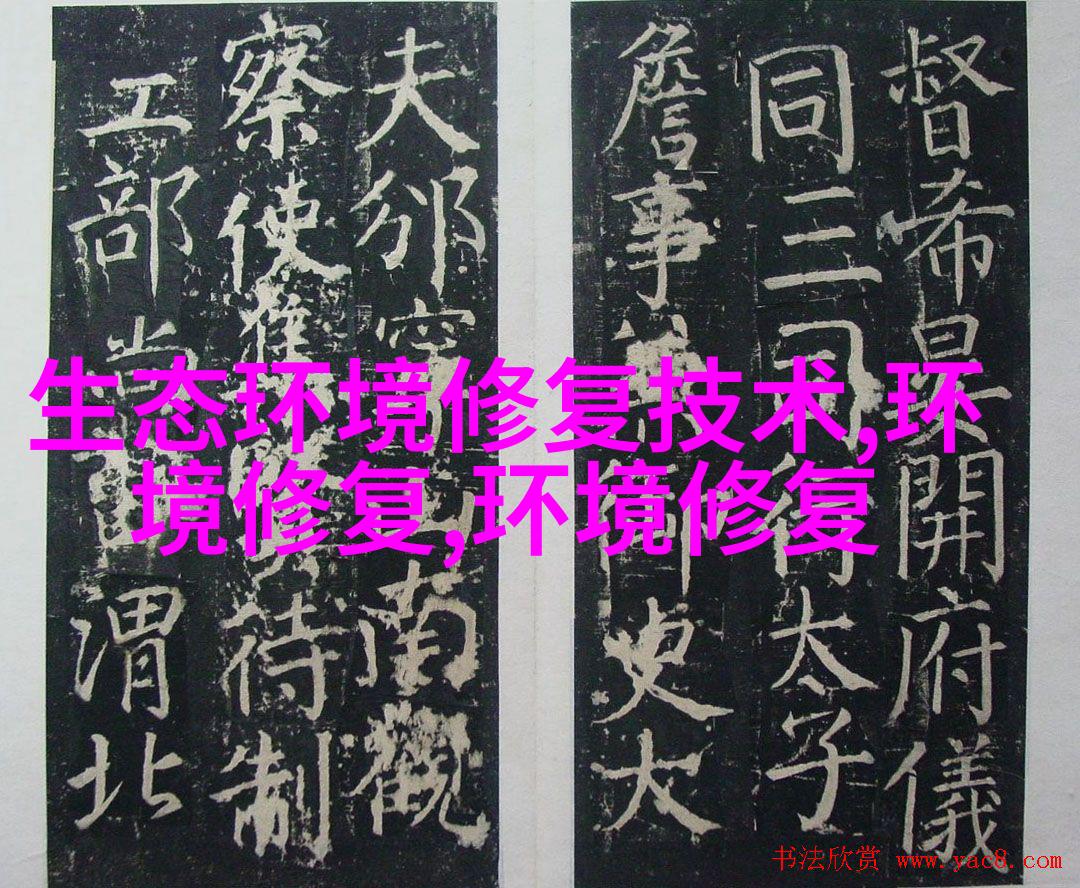 生态环境修复技术,环
境修复,环境修复
督希開府儀
同三司太子
詹事史大
夫邠寧南觀
察使待制
工部尚渭北
书法欣赏 www.yac8.com